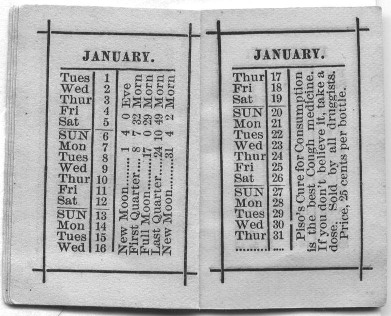 JANUARY.
Tues 1
Wed 2
Thur 3
Fri 4
Sat 5
SUN 6
Mon 7
Tues 8
Wed 9
Thur 10
Fri 11
Sat 12
SUN 13
Mon 14
Tues 15
Wed 16
New Moon....... 1 4 0 Eve
First Quarter.... 8 7 32 Morn
Full Moon.......17 0 29 Morn
Last Quarter...24 10 49 Morn
New Moon.........31 4 2 Morn
JANUARY.
Thur 17
Fri 18
Sat 19
SUN 20
Mon 21
Tues 22
Wed 23
Thur 24
Fri 25
Sat 26
SUN 27
Mon 28
Tues 29
Wed 30
Thur 31
.......... ....
Piso's Cure for Consumption
is the best Cough medicine.
If you don't believe it, take a
dose. Sold by all druggists.
Price, 25 cents per bottle.